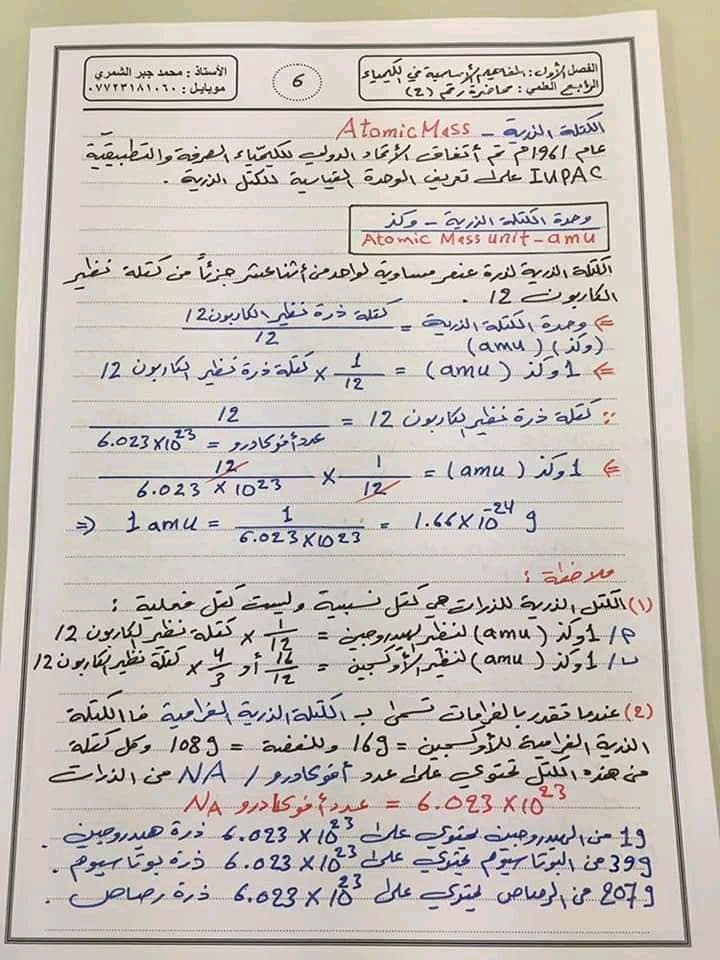 الفصل الأول : المفاهيم الأساسية في الكيمياء
الرابع العلمي : محاضرة رقم (2)
6
الأستاذ : محمد جبر الشمري
موبايل : ٠٧٧٢٣١٨١٠٦٠
الكتلة الذرية - Atomic Mass
عام 1961م تم أتفاق الأتحاد الدولي للكيمياء الصرفة والتطبيقية
IUPAC على تعريف الوحدة القياسية للكتل الذرية .
وحدة الكتلة الذرية - وكذ
Atomic Mass unit - amu
الكتلة الذرية لذرة عنصر مساوية لواحد من أثنا عشر جزءاً من كتلة نظير
الكاربون 12 .
⇐ وحدة الكتلة الذرية = كتلة ذرة نظير الكاربون 12 / 12
(وكذ) (amu)
⇐ 1 وكذ (amu) = 1/12 × كتلة ذرة نظير الكاربون 12
∵ كتلة ذرة نظير الكاربون 12 = 12 / عدد أفوكادرو = 6.023×10²³
⇐ 1 وكذ (amu) = 1/12 × 12 / 6.023 × 10²³
⇒ 1 amu = 1 / 6.023×10²³ = 1.66×10⁻²⁴ g
ملاحظة :
(1) الكتل الذرية للذرات هي كتل نسبية وليست كتل فعلية :
م/ 1 وكذ (amu) لنظير الهيدروجين = 1/12 × كتلة نظير الكاربون 12
ب/ 1 وكذ (amu) لنظير الأوكسجين = 16/12 أو 4/3 × كتلة نظير الكاربون 12
(2) عندما تقدر بالغرامات تسمى بـ الكتلة الذرية الغرامية فالكتلة
الذرية الغرامية للأوكسجين = 16g وللفضة = 108g وكل كتلة
من هذه الكتل تحتوي على عدد أفوكادرو / NA من الذرات
عدد أفوكادرو NA = 6.023×10²³
1g من الهيدروجين يحتوي على 6.023×10²³ ذرة هيدروجين .
39g من البوتاسيوم يحتوي على 6.023×10²³ ذرة بوتاسيوم .
207g من الرصاص يحتوي على 6.023×10²³ ذرة رصاص .